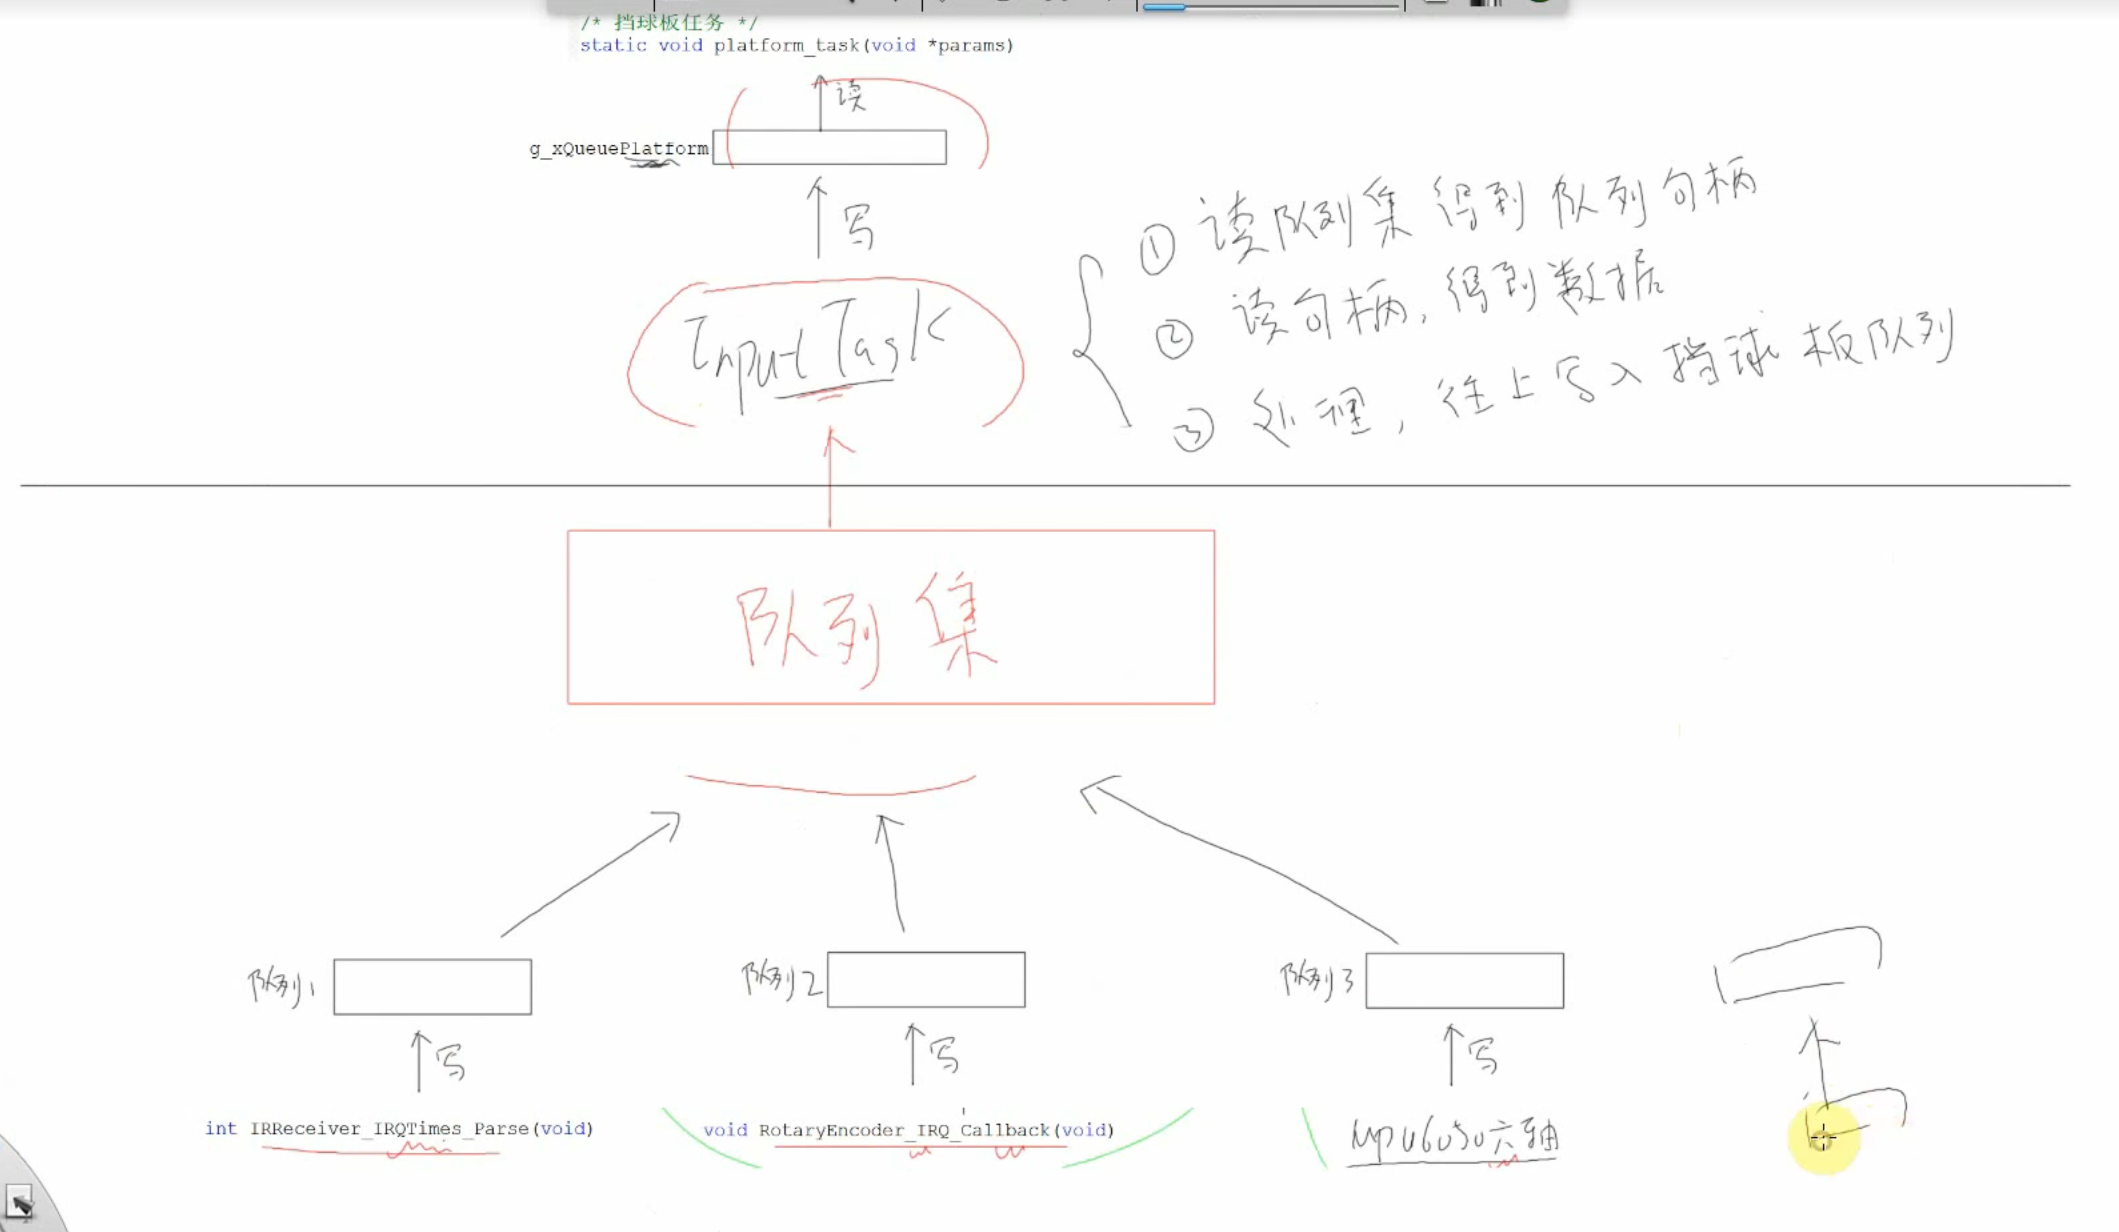 /* 挡球板任务 */
static void platform_task(void *params)
读
g_xQueuePlatform
写
Input Task
① 读队列集 得到 队列句柄
② 读句柄, 得到数据
③ 处理, 往上写入挡球板队列
队列集
队列1
队列2
队列3
写
写
写
int IRReceiver_IRQTimes_Parse(void)
void RotaryEncoder_IRQ_Callback(void)
Mpu6050六轴